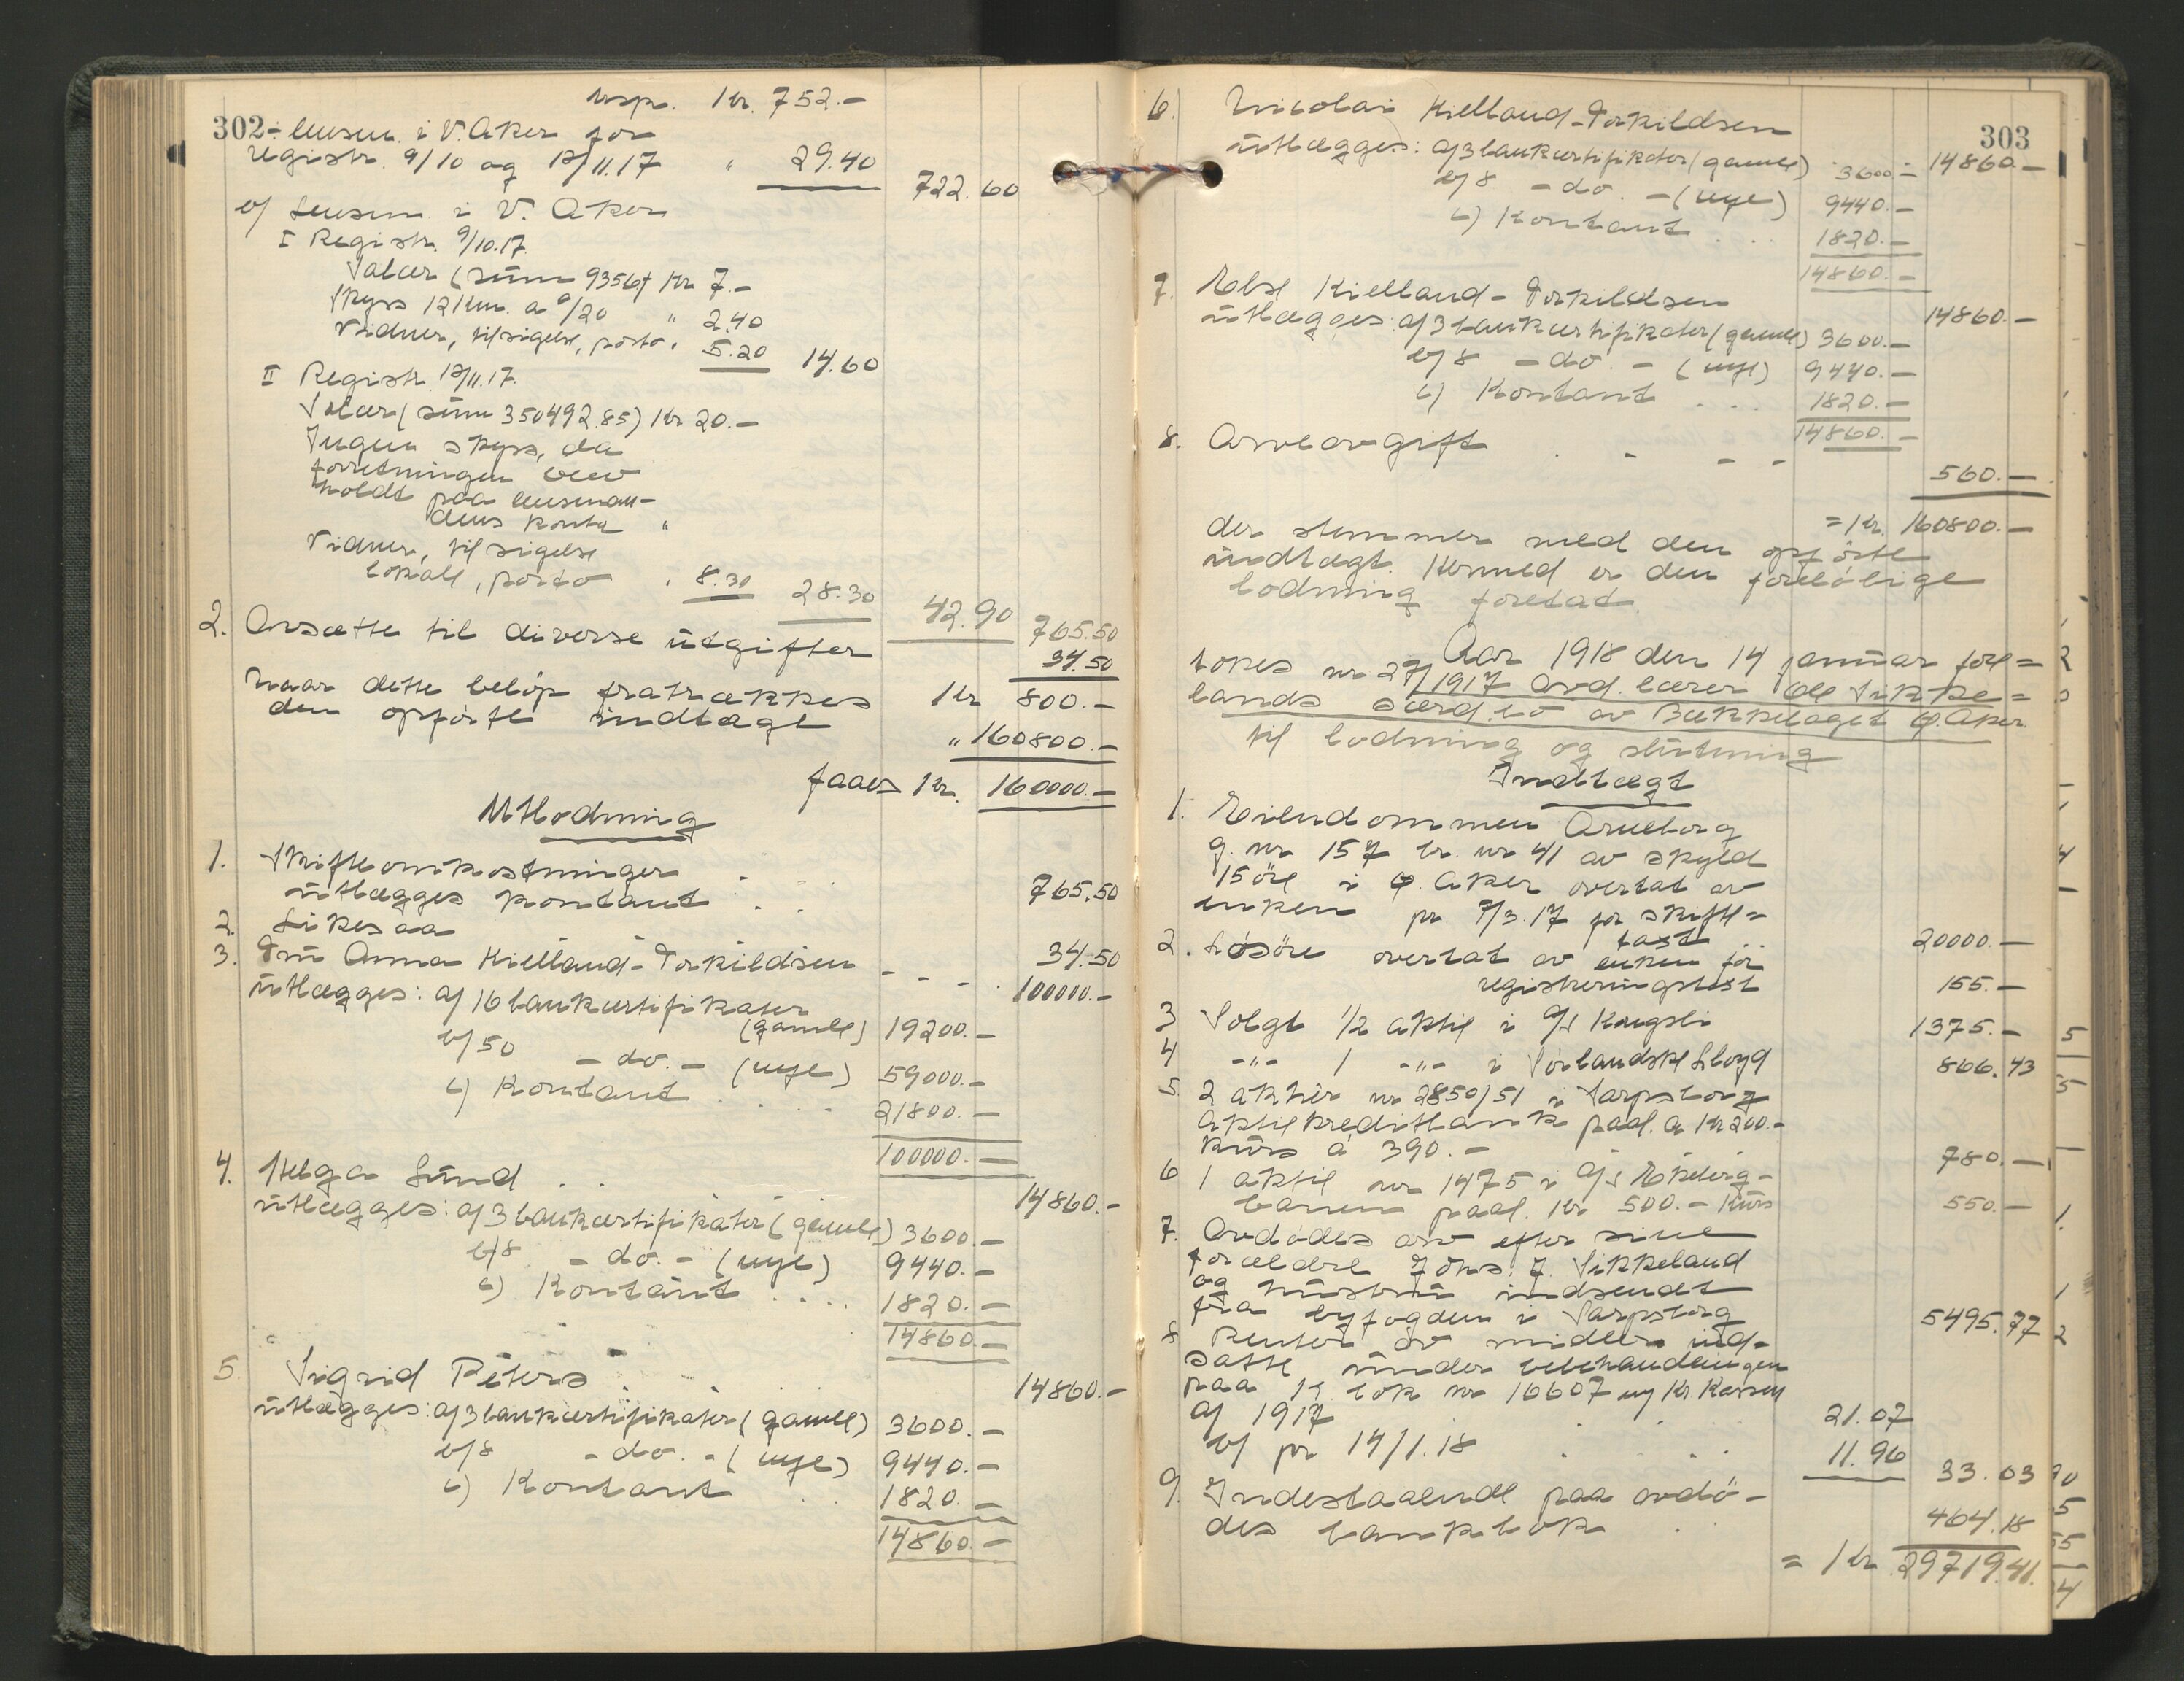 302
trsp. Kr. 752.-
÷ lensm. i V. Aker for
registr. 9/10 og 12/11.17 " 29.40
722.60
b/ Lensm. i V. Aker
I Registr. 9/10.17.
Salær (sum 9356) Kr 7.-
Skyss 12 km. a 0/20 " 2.40
Vidner, tilsigelse, porto " 5.20 14.60
II Registr. 12/11.17.
Salær (sum 350492.85) Kr 20.-
Ingen skyss, da
forretningen blev
holdt paa lensman-
dens kontr. "
Vidner, tilsigelse
lokale, porto " 8.30 28.30
42.90 765.50
2. Avsætte til diverse utgifter 34.50
Kr 800.-
Naar dette beløp fratrækkes
den opførte indtægt " 160800.-
faaes Kr. 160000.-
Utlodning
1. Skifteomkostninger
utlægges kontant . . 765.50
2. Likesaa 34.50
3. Fru Anna Kielland-Torkildsen - - . 100000.-
utlægges: a/ 16 bankcertifikater
(gamle) 19200.-
b/ 50 - do. - (nye) 59000.-
c) Kontant . . . . 21800.-
100000.-
4. Helga Lund . . 14860.-
utlægges: a/ 3 bankcertifikater (gamle) 3600.-
b/ 8 - do. - (nye) 9440.-
c) Kontant . . . . 1820.-
14860.-
5. Sigrid Peters . . . 14860.-
utlægges: a/ 3 bankcertifikater (gamle) 3600.-
b/ 8 - do. - (nye) 9440.-
c) Kontant . . 1820.-
14860.-
303
6. Nicolai Kielland-Torkildsen 14860.-
utlægges: a/ 3 bankcertifikater (gamle) 3600.-
b/ 8 - do. - (nye) 9440.-
c) Kontant . . . 1820.-
14860.-
7. Else Kielland-Torkildsen 14860.-
utlægges: a/ 3 bankcertifikater (gamle) 3600.-
b/ 8 - do. - (nye) 9440.-
c) Kontant . . . 1820.-
14860.-
8. Arveavgift . - - - 560.-
= Kr. 160800.-
der stemmer med den opførte
indtægt. Hermed er den foreløbige
lodning foretat
Aar 1918 den 14 januar fore=
tokes nr 27/1917 Avd. lærer Ole Sikke=
lands særd.bo av Bækkelaget Ø. Aker
til lodning og slutning
Indtægt
1. Eiendommen Arneborg
g. nr 157 br. nr 41 av skyld
15 øre i Ø. Aker overtat av
enken pr. 7/3.17 for skifte=
takst 20000.-
2. Løsøre overtat av enken for
registreringstakst 155.-
3 Solgt 1/2 aktie i A/S Kragsli 1375.-
4 -"- 1 -"- i Sørlandske Lloyd 866.43
5. 2 aktier nr 2850/51 i Sarpsborg
Aktiekreditbank paal. a Kr 200.-
kurs á 390.- 780.-
6 1 aktie nr 1475 i A/S Ekeberg-
banen paal. Kr 500.- kurs 550.-
7. Avdødes arv efter sine
forældre Johs. J. Sikkeland
og hustru indsendt
fra byfogden i Sarpsborg 5495.77
8 Renter av midler ind-
satte under bobehandlingen
paa K. bok nr 16607 ny Kr Kassen
a/ 1917 . . 21.07
b/ pr 14/1.18 . . . 11.96 33.03
9. Indestaaende paa avdø-
des bankbok . 464.18
= Kr 29719.41.